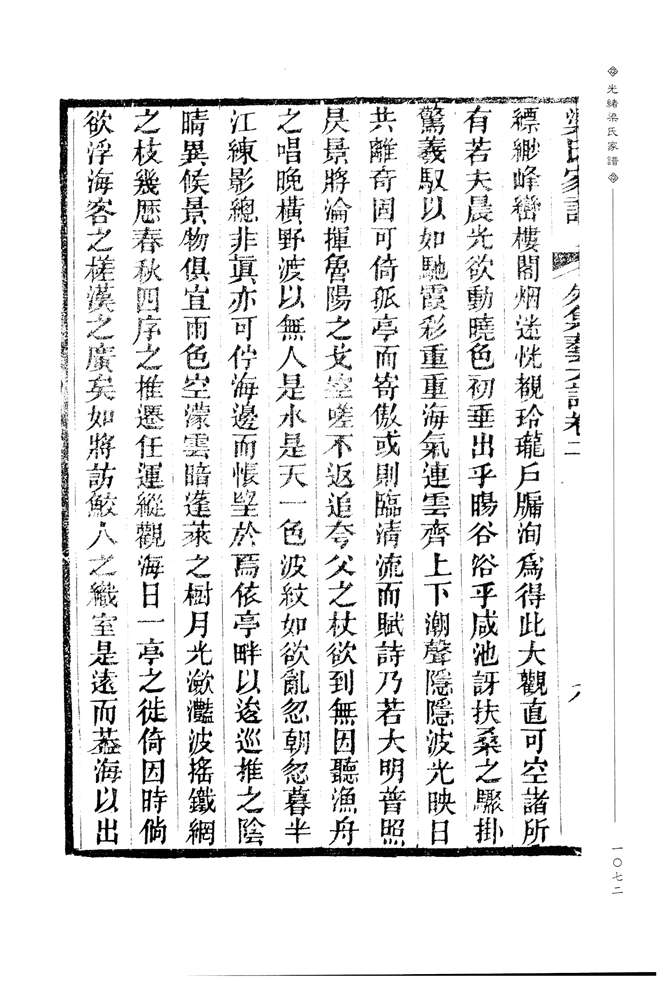 光緒梁氏家譜
一〇七二
梁氏家譜 外集藝文譜卷二 八
縹緲峰巒樓閣烟迷恍覩玲瓏戶牖洵為得此大觀直可空諸所
有若夫晨光欲動曉色初垂出乎暘谷浴乎咸池訝扶桑之驟掛
驚羲馭以如馳霞彩重重海氣連雲齊上下潮聲隱隱波光映日
共離奇固可倚孤亭而寄傲或則臨清流而賦詩乃若大明普照
昃景將淪揮魯陽之戈空嗟不返追夸父之杖欲到無因聽漁舟
之唱晚橫野渡以無人是水是天一色波紋如欲亂忽朝忽暮半
江練影總非眞亦可佇海邊而悵望於焉依亭畔以逡巡推之陰
晴異候景物俱宜雨色空濛雲暗蓬萊之樹月光瀲灩波搖鐵網
之枝幾歷春秋四序之推遷任運縱觀海日一亭之徙倚因時倘
欲浮海客之槎漢之廣矣如將訪鮫人之織室是遠而葢海以出